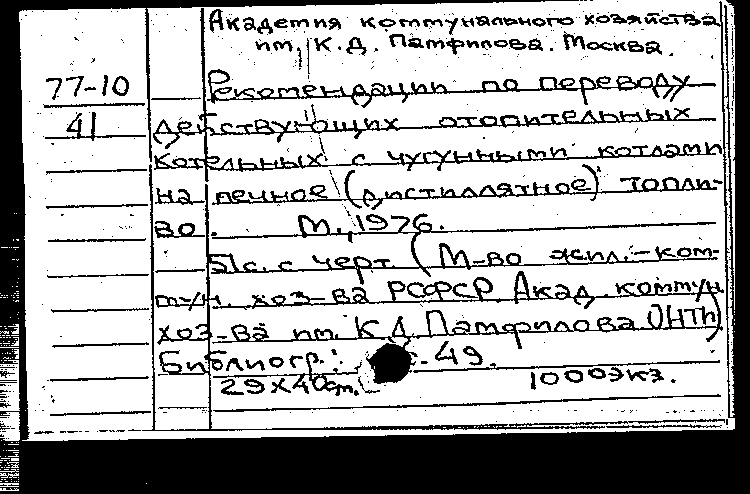 Академия коммунального хозяйства
им. К.Д. Памфилова. Москва.
77-10 Рекомендации по переводу
41 действующих отопительных
котельных с чугунными котлами
на печное (дистиллятное) топли-
во. М., 1976.
51с. с черт. (М-во жил.-ком-
мун. хоз-ва РСФСР. Акад. коммун.
хоз-ва им. К.Д. Памфилова. ОНТИ)
Библиогр.: .49.
29х40см. 1000экз.